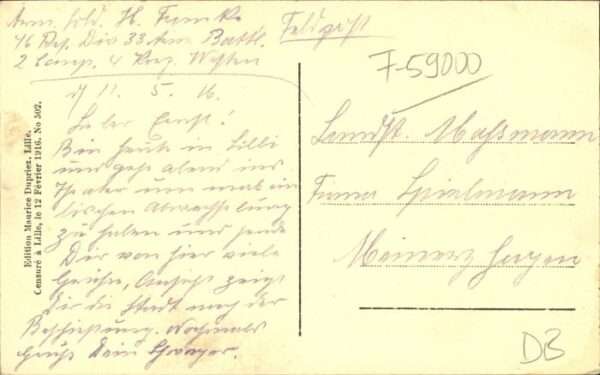 Arm. Sold. H. Funke
46 Res. Div 33 Arm. Battl.
2 Comp. 4 Korp. Westen
Feldpost
F-59000
d 11. 5. 16.
Lieber Ernst!
Bin heute in Lille
und gehe abend ins
Theater um mal ein
bischen Abwechselung
zu haben und sende
Dir von hier viele
Grüße, Ansicht zeigt
Dir die Stadt nach der
Beschießung. Nochmals
Gruß Dein Schwager.
Edition Maurice Dupriez, Lille.
Censuré à Lille, le 12 Février 1916. No 507.
Landst. Massmann
Firma Spielmann
Meinerzhagen
DB